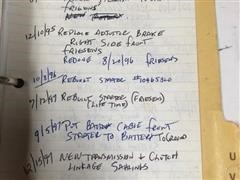 FRIESENS
12/10/95 REPLACE ADJUSTIC BRAKE
RIGHT SIDE FRONT
FRIESENS
REDONE 8/20/96 FRIESENS
10/3/96 REBUILT STARTER
7/12/97 REBUILT STARTER (FRIESEN)
(LIFE TIME)
9/5/97 PUT BATTERY CABLE FROM
STARTER TO BATTERY TO GROUND
12/15/97 NEW TRANSMISSION & CLUTCH
LINKAGE